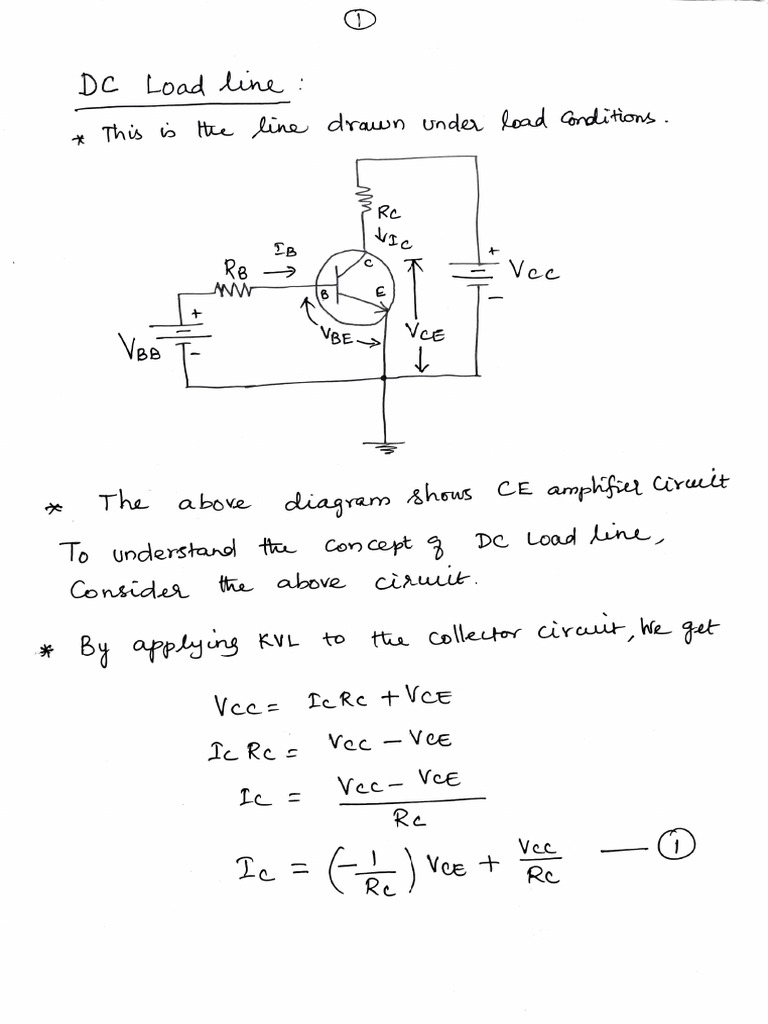 ①
DC Load line :
* This is the line drawn under load conditions.
RC
↓IC
IB
RB →
C
B
E
+
VCC
-
+
VBB
-
VBE
VCE
* The above diagram shows CE amplifier circuit
To understand the concept of DC Load line,
Consider the above circuit.
* By applying KVL to the collector circuit, We get
VCC = ICRC + VCE
IC RC = VCC - VCE
IC = VCC - VCE
RC
IC = (-1/RC) VCE + VCC/RC — ①